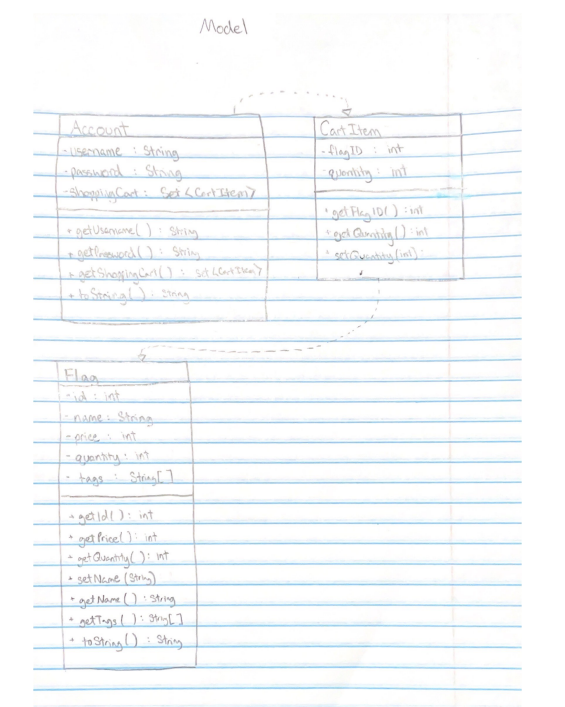 Model
Account
- username : String
- password : String
- shoppingCart : Set <CartItem>
+ getUsername( ) : String
+ getPassword( ) : String
+ getShoppingCart( ) : Set <CartItem>
+ toString( ) : String
CartItem
- flagID : int
- quantity : int
+ getFlagID( ) : int
+ getQuantity( ) : int
+ setQuantity(int) :
Flag
- id : int
- name : String
- price : int
- quantity : int
- tags : String[ ]
+ getId( ) : int
+ getPrice( ) : int
+ getQuantity( ) : int
+ setName (String)
+ getName ( ) : String
+ getTags ( ) : String[ ]
+ toString ( ) : String